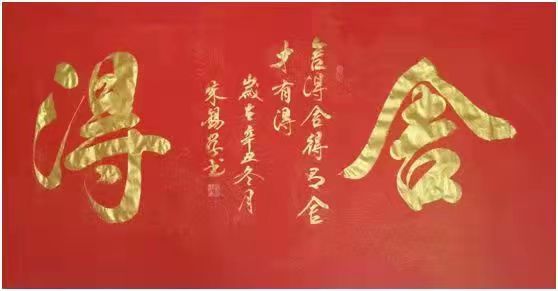 舍
舍得舍得有舍
才有得
歲在辛丑冬月
宋书
得